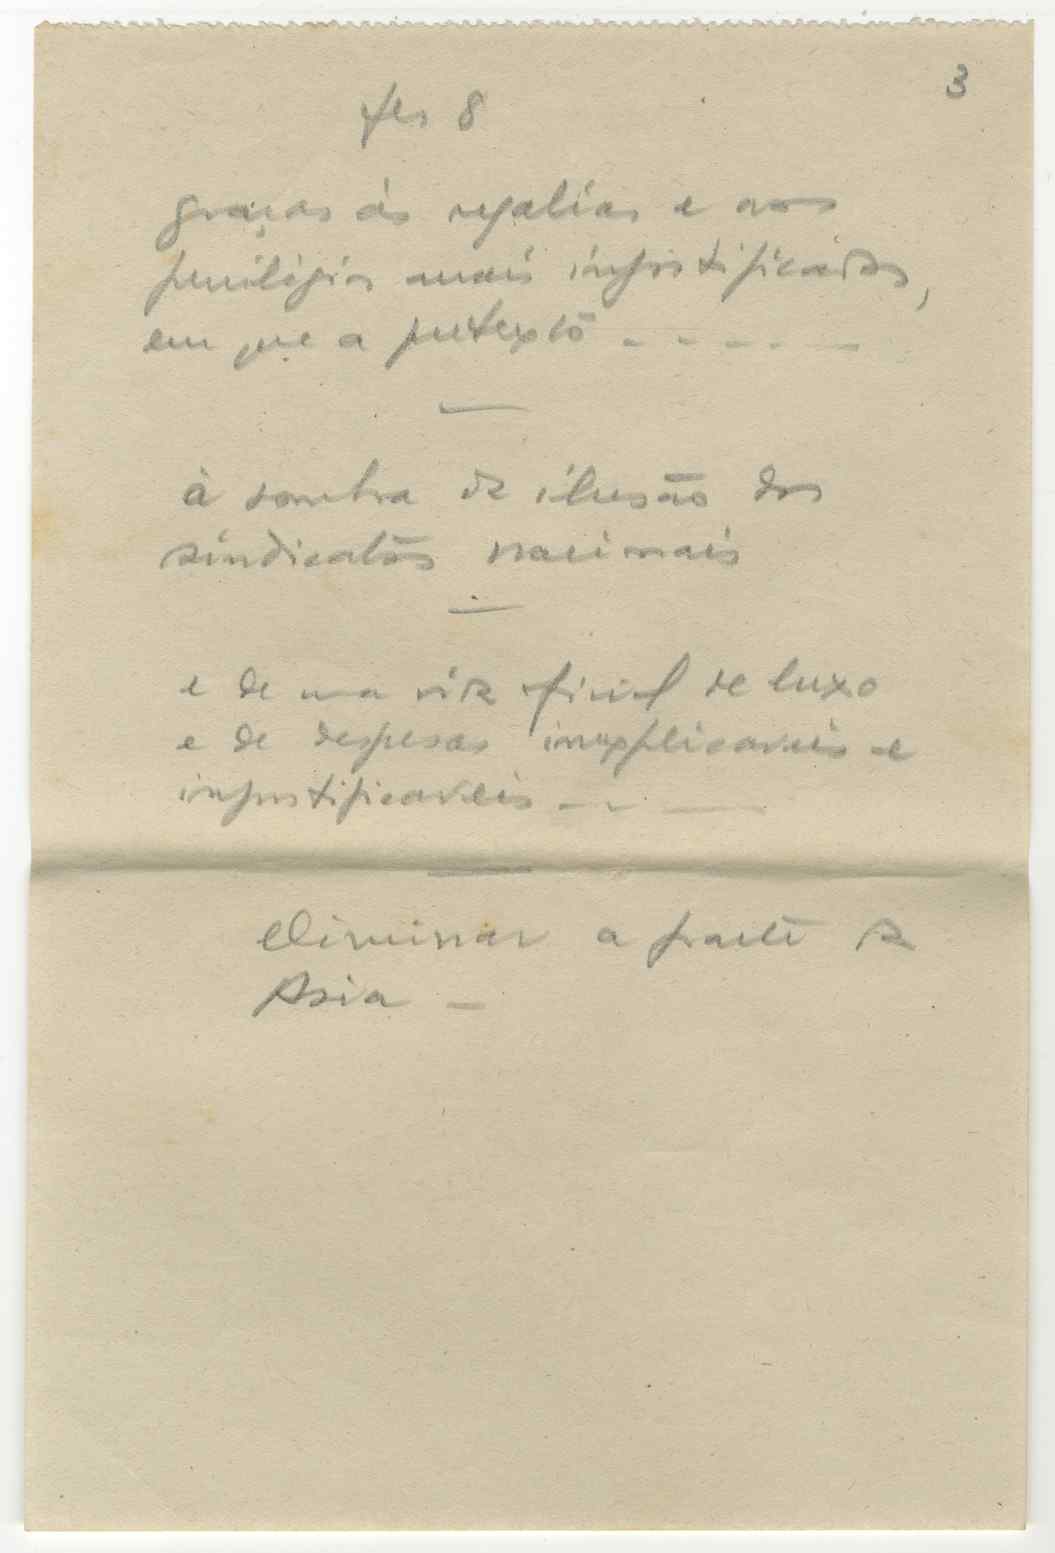 3
fls 8
graças ás regalias e aos
privilégios mais injustificados,
em que a pretexto - - - - -
à sombra da ilusão dos
sindicatos nacionais
e de uma vida fácil de luxo
e de despesas inexplicaveis e
injustificaveis - - -
Eliminar a parte da
Asia -